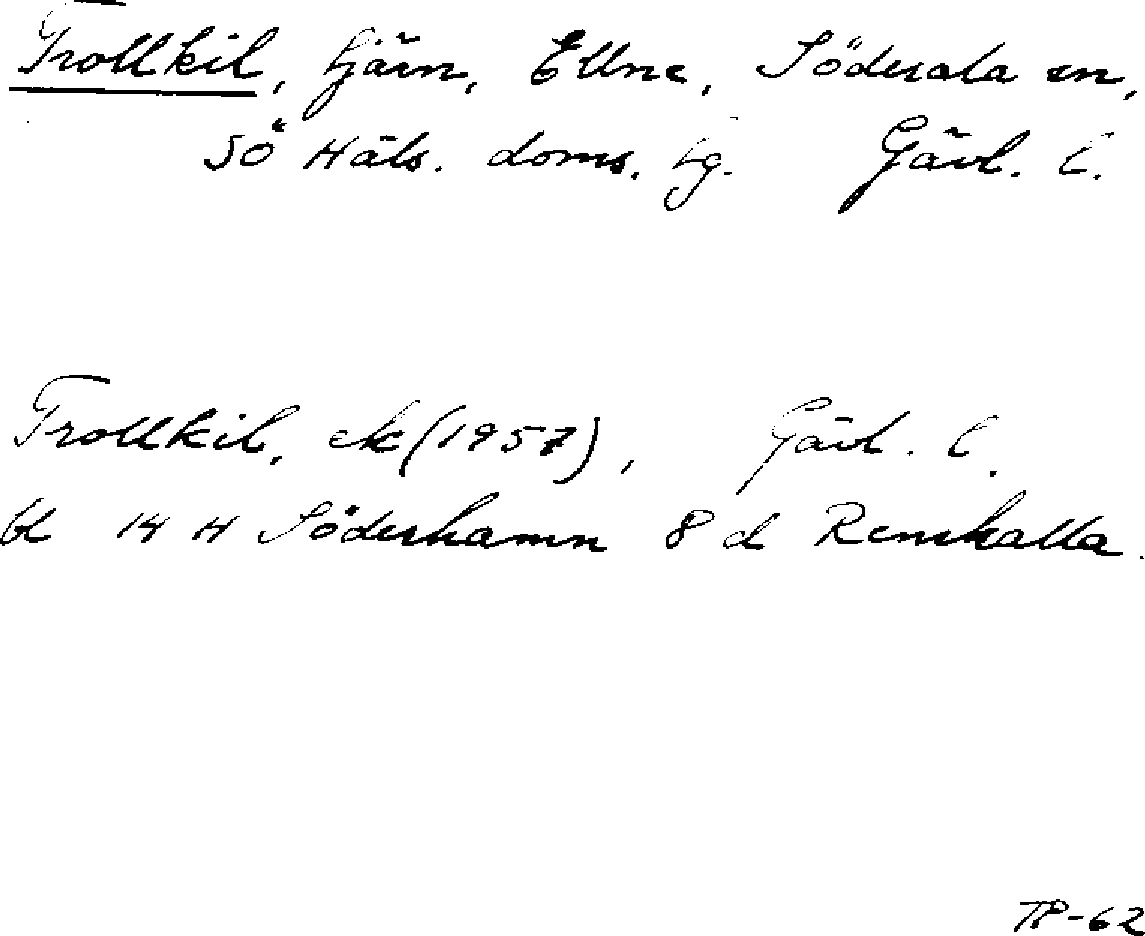 Trollkil, tjärn, Ellne, Söderala sn,
Sö Häls. doms. tg. Gävl. l.
Trollkil, ek (1957), Gävl. l.
bl 14 H Söderhamn 8 d Renshalla.
TP-62